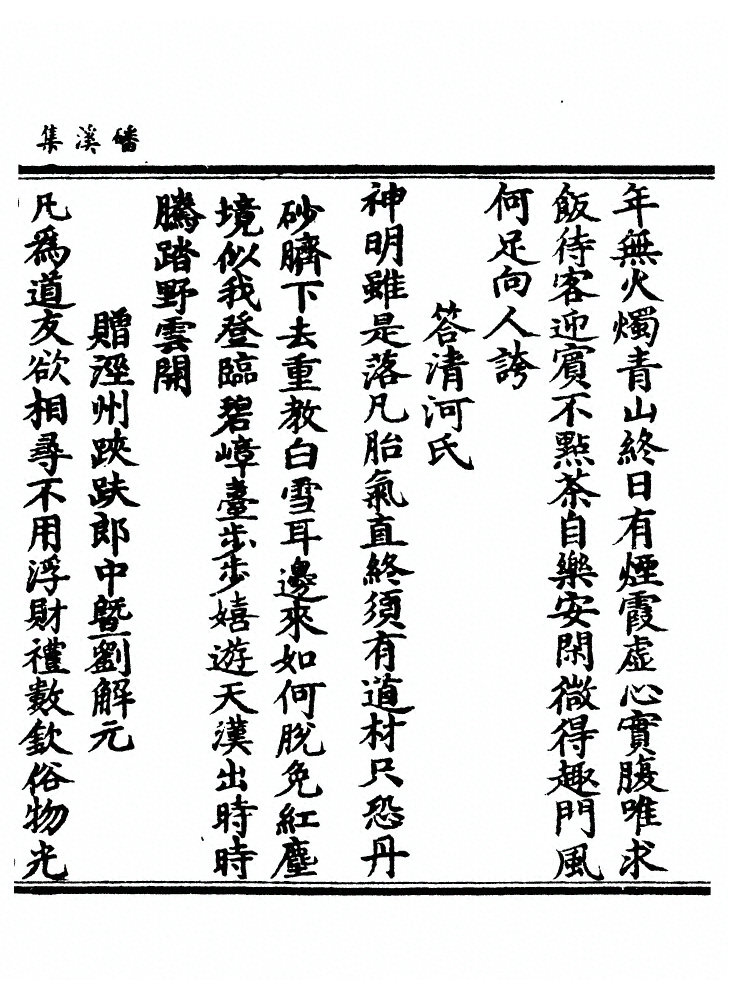 磻溪集
年無火燭青山終日有煙霞虛心實腹唯求
飯待客迎賓不點茶自樂安閑微得趣門風
何足向人誇
答清河氏
神明雖是落凡胎氣直終須有道材只恐丹
砂臍下去重教白雪耳邊來如何脫免紅塵
境似我登臨碧嶂臺步步嬉遊天漢出時時
騰踏野雲開
贈涇州陝趺郎中暨劉解元
凡為道友欲相尋不用浮財禮數欽俗物光